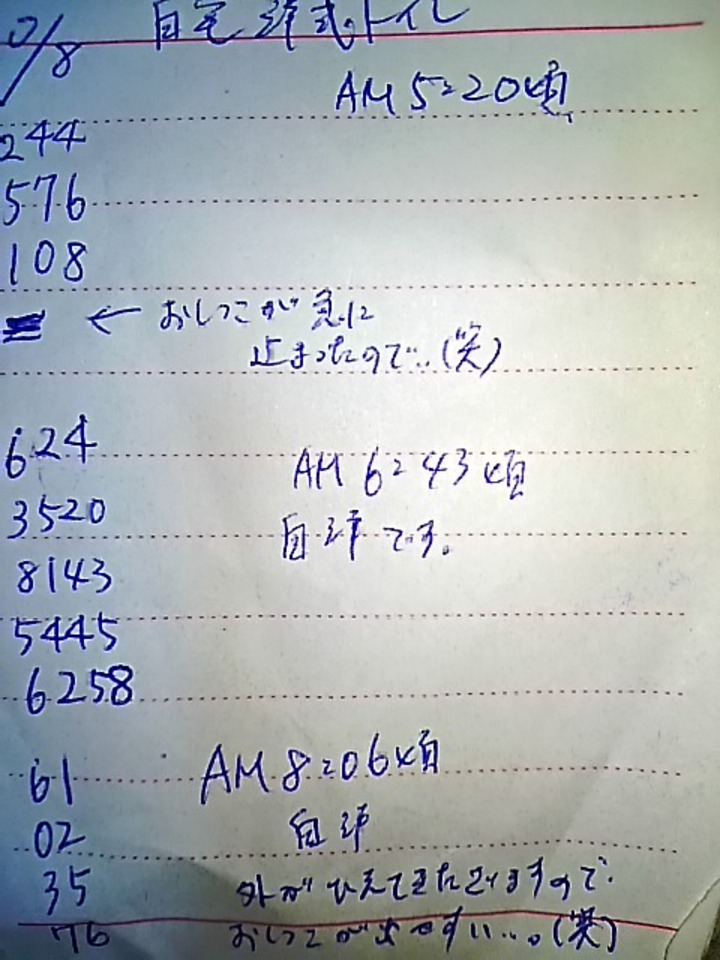 /8 自宅 洋式トイレ
AM 5:20頃
244
576
108
← おしっこが 急に
止まったので‥(笑)
624
AM 6:43頃
3520
自洋です。
8143
5445
6258
61 AM 8:06頃
02 自洋
35 外がひえてきてますので
76 おしっこが出やすい…。(笑)